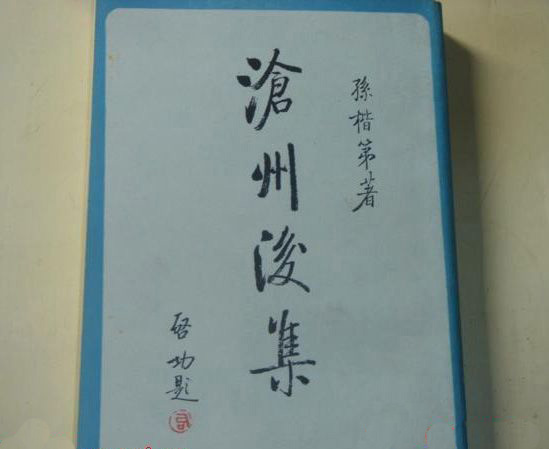 孫楷第著
滄州後集
启功題